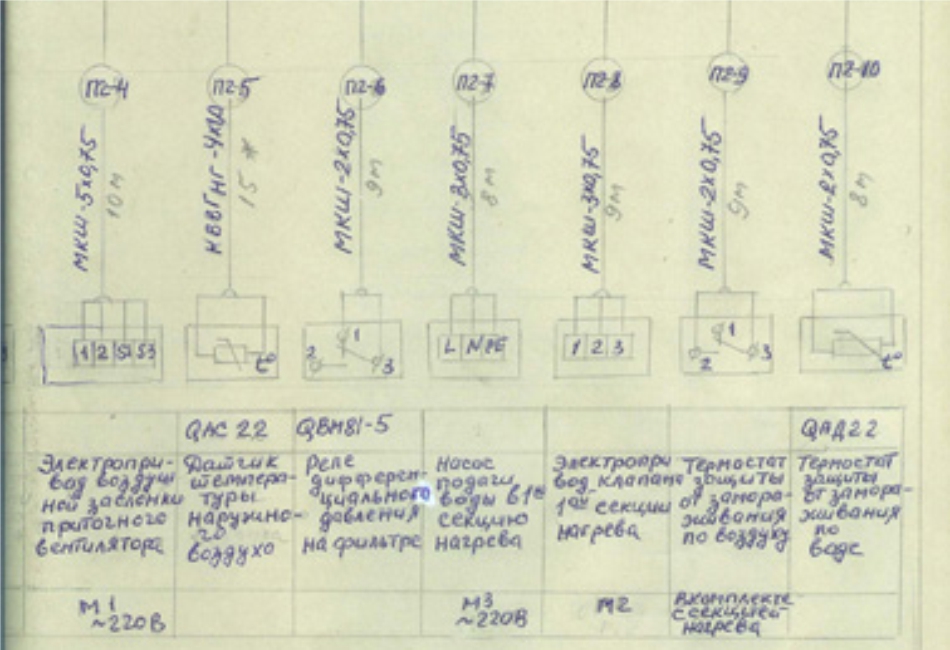 П2-4 П2-5 П2-6 П2-7 П2-8 П2-9 П2-10
МКШ-5х0,75 10м
КВВГнг-4х1,0 15
МКШ-2х0,75 9м
МКШ-3х0,75 8м
МКШ-3х0,75 9м
МКШ-2х0,75 9м
МКШ-2х0,75 8м
1 2 S2 S3
t°
1 2 3
L N PE
1 2 3
1 2 3
t°
QAC 22 QBM81-5 QAД22
Электропри-
вод воздуш
ной заслонки
приточного
вентилятора
Датчик
темпера-
туры
наружно-
го
воздухо
Реле
дифферен-
циального
давления
на фильтре
Насос
подачи
воды в 1ю
секцию
нагрева
Электропри
вод клапана
1ой секции
нагрева
Термостат
защиты
от замора-
живания
по воздуху
Термостат
защиты
от замора-
живания
по
воде
М1
~220В
М3
~220В
М2
В комплекте
с секцией
нагрева